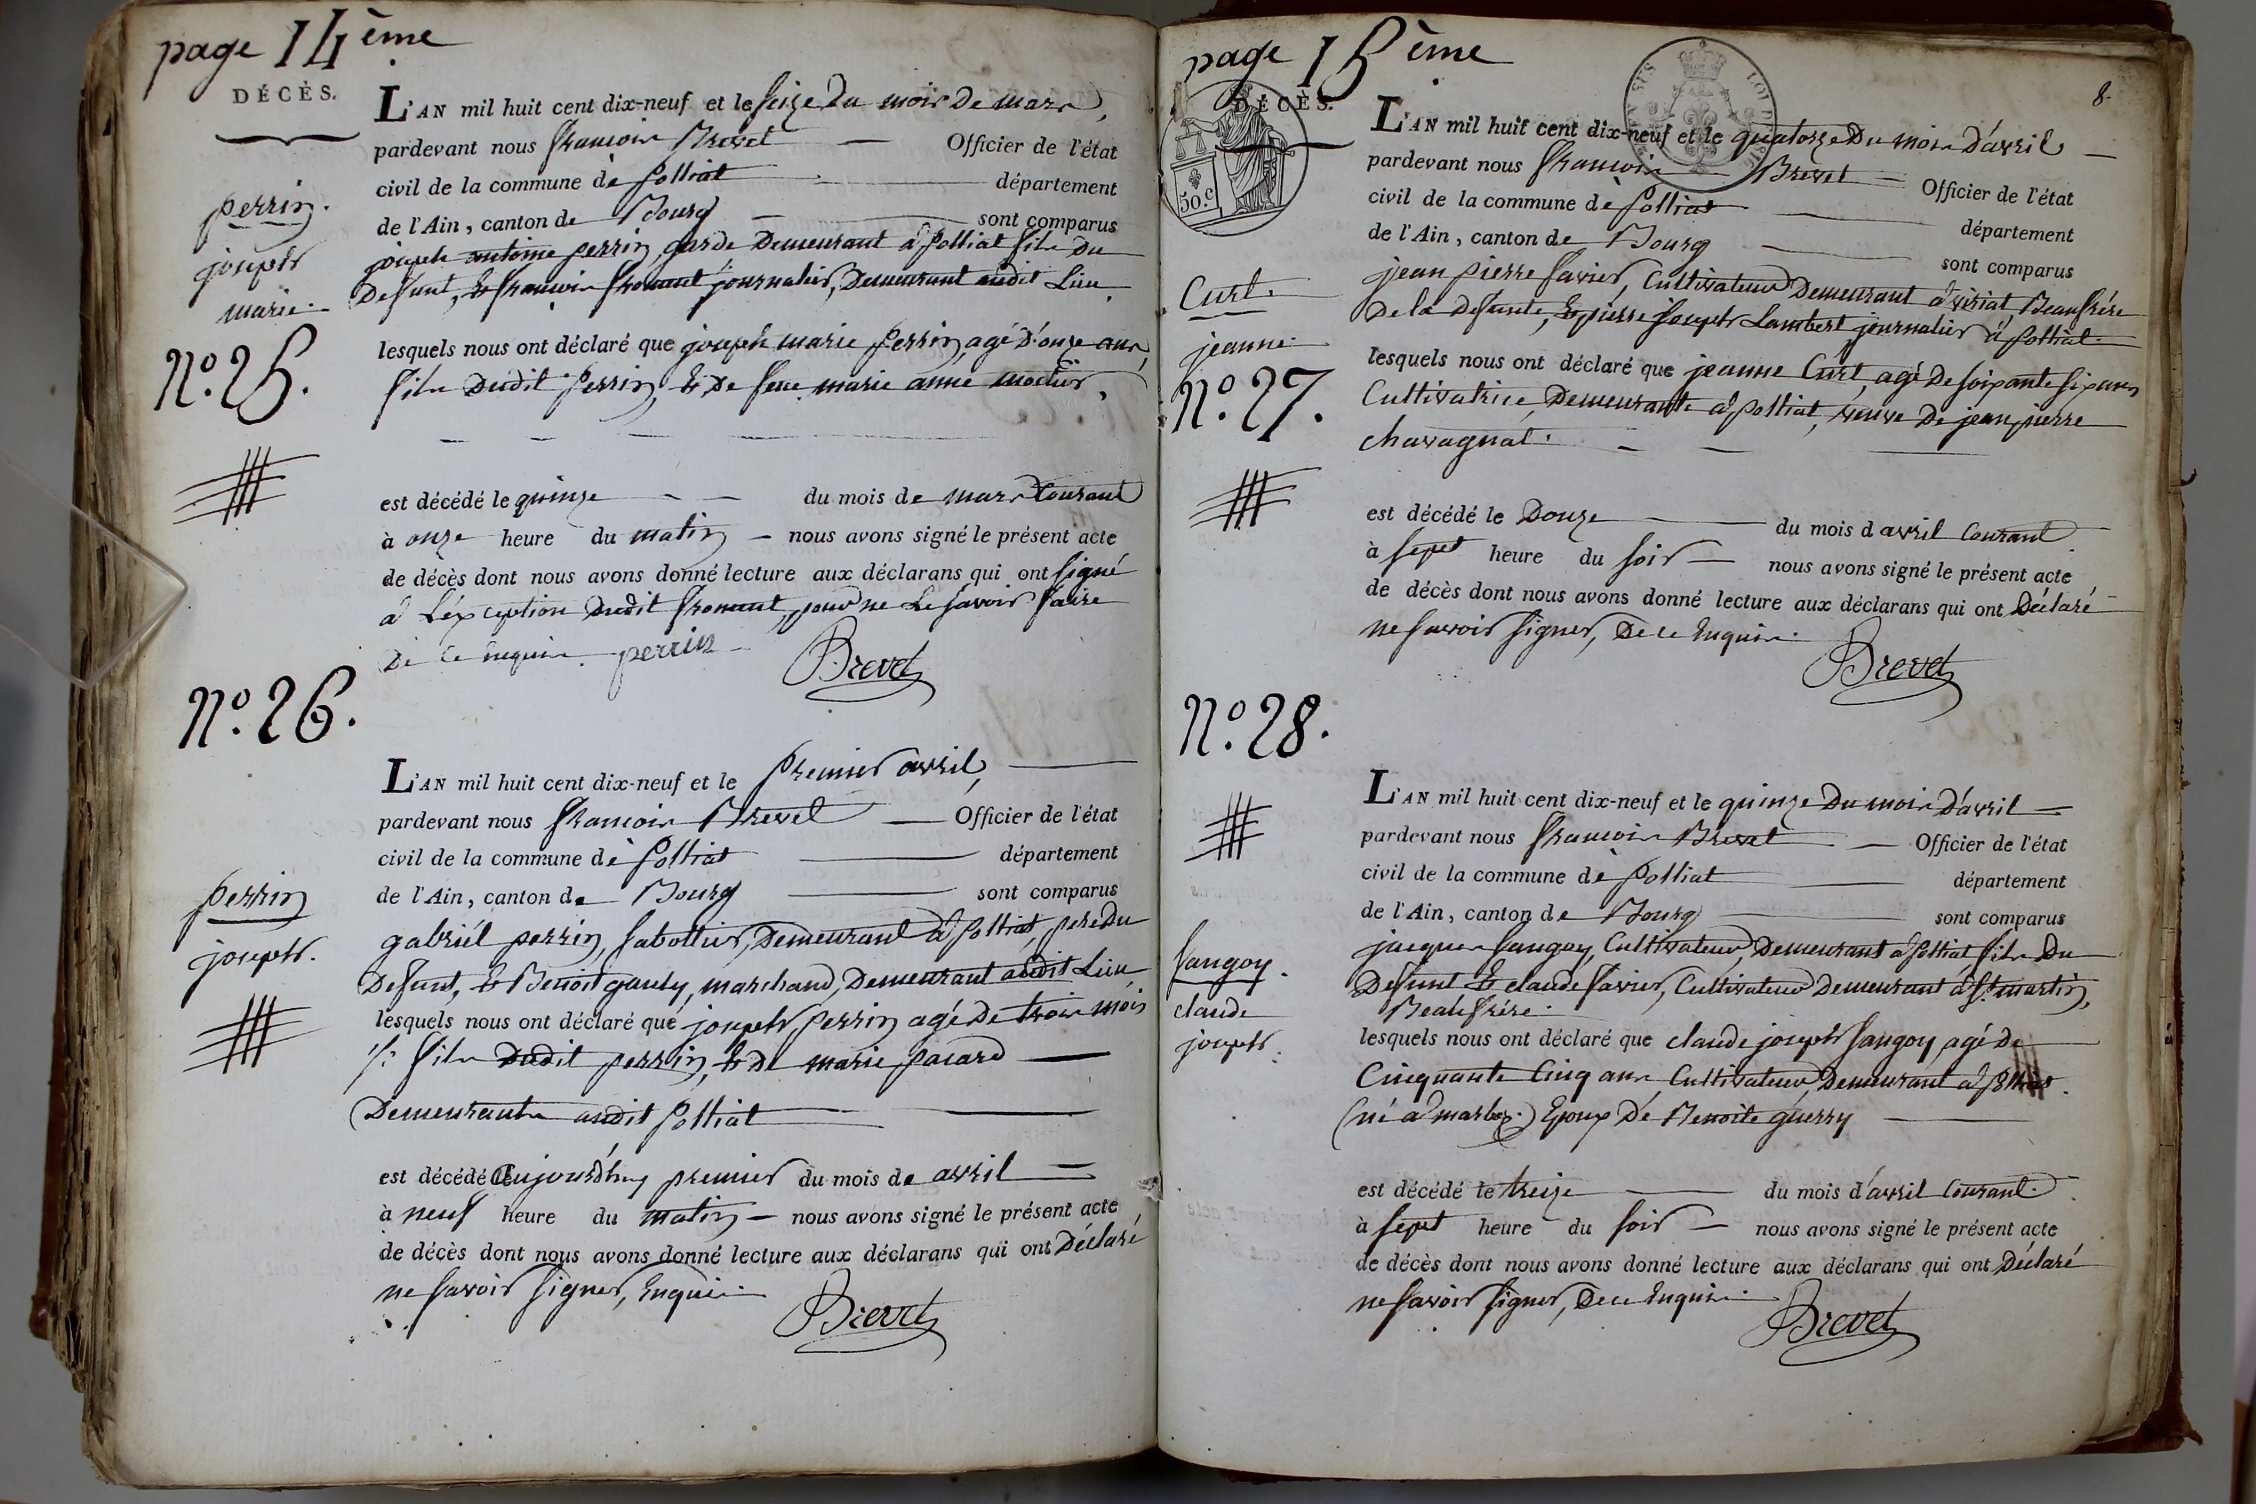 page 14ème
DÉCÈS.
L'AN mil huit cent dix-neuf et le seize du mois de mars,
pardevant nous françois Brevet Officier de l'état
civil de la commune de polliat département
de l'Ain, canton de Bourg sont comparus
perrin.
joseph
marie.
joseph antoine perrin, garde Demeurant à polliat fils du
Defunt, et françois fromant journalier, Demeurant audit Lieu
N.º 25.
lesquels nous ont déclaré que joseph marie perrin, agé d'onze ans,
fils dudit perrin, et de feue marie anne
est décédé le quinze du mois de mars Courant
à onze heure du matin nous avons signé le présent acte
de décès dont nous avons donné lecture aux déclarans qui ont signé
à L'exception dudit fromant, pour ne Le savoir faire
De ce Enquis. perrin
Brevet
N.º 26.
L'AN mil huit cent dix-neuf et le premier avril,
pardevant nous françois Brevet Officier de l'état
civil de la commune de polliat département
de l'Ain, canton de Bourg sont comparus
perrin
joseph.
gabriël perrin, sabottier, Demeurant à polliat, pere du
Defunt, et Benoit gauty, marchand, Demeurant audit Lieu
lesquels nous ont déclaré que joseph perrin agé de trois mois
fils dudit perrin, et de marie pacard
Demeurants audit polliat
est décédé aujourd'huy premier du mois de avril
à neuf heure du matin nous avons signé le présent acte
de décès dont nous avons donné lecture aux déclarans qui ont Déclaré
ne savoir signer, Enquis.
Brevet
page 15ème
DÉCÈS.
50.c
8.
L'AN mil huit cent dix-neuf et le quatorze du mois d'avril
pardevant nous françois Brevet Officier de l'état
civil de la commune de polliat département
de l'Ain, canton de Bourg sont comparus
Curt.
jeanne.
jean pierre favier, Cultivateur Demeurant à viriat, Beaufrère
De la Defunte, et pierre joseph Lambert journalier à polliat.
N.º 27.
lesquels nous ont déclaré que jeanne Curt, agé de soixante six ans
Cultivatrice, Demeurante à polliat, veuve de jean pierre
chavagnat.
est décédé le Douze du mois d avril Courant
à sept heure du soir nous avons signé le présent acte
de décès dont nous avons donné lecture aux déclarans qui ont Déclaré
ne savoir signer, De ce Enquis.
Brevet
N.º 28.
L'AN mil huit cent dix-neuf et le quinze du mois d'avril
pardevant nous françois Brevet Officier de l'état
civil de la commune de polliat département
de l'Ain, canton de Bourg sont comparus
fangoy.
claude
joseph.
jacques fangoy, Cultivateur, Demeurant à polliat fils du
Defunt et claude favier, Cultivateur Demeurant à St. martin,
Beaufrère.
lesquels nous ont déclaré que claude joseph fangoy agé de
Cinquante Cinq ans Cultivateur Demeurant à polliat.
(né à marboz.) Epoux de Benoite guerry
est décédé le treize du mois d'avril Courant.
à sept heure du soir nous avons signé le présent acte
de décès dont nous avons donné lecture aux déclarans qui ont Déclaré
ne savoir signer, De ce Enquis.
Brevet